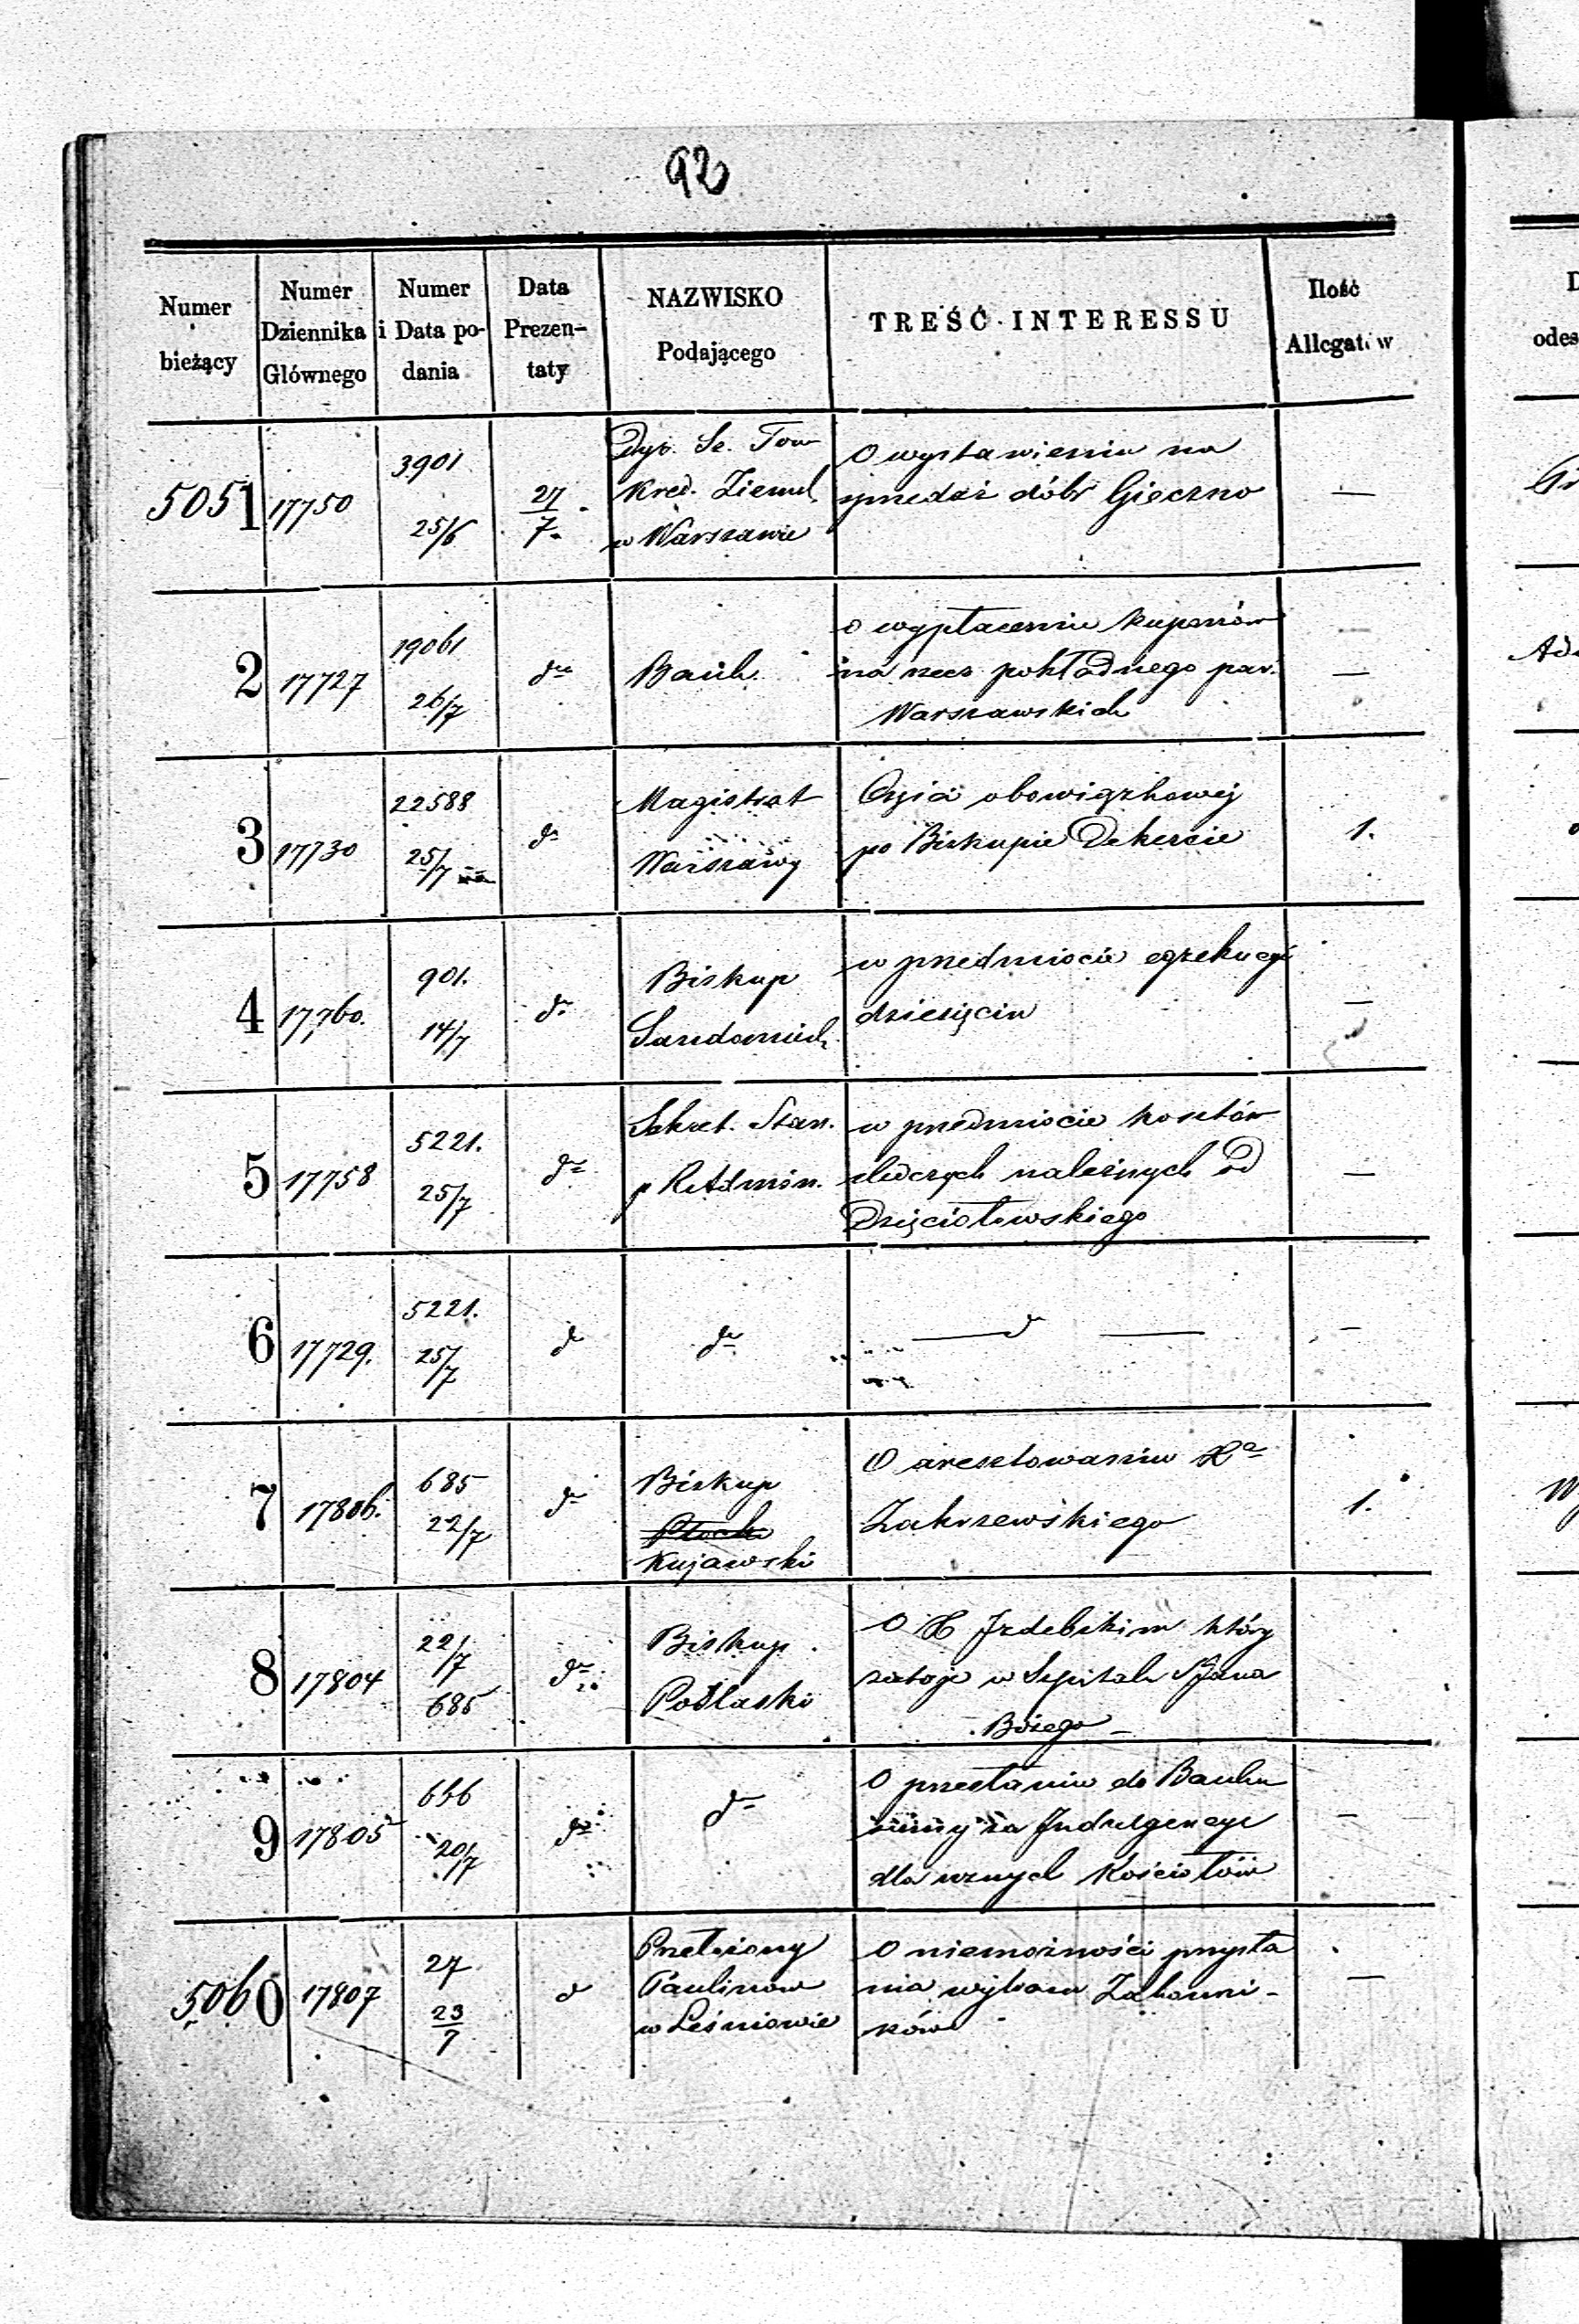 92
Numer bieżący
Numer Dziennika Głównego
Numer i Data podania
Data Prezentaty
NAZWISKO Podającego
TREŚĆ INTERESSU
Ilość Allegatów
5051
17750
3901
25/6
27/7
Dyr. Sz. Tow
Kred. Ziemsk
w Warszawie
O wystawieniu na
sprzedaż dóbr Gieczno
—
2
17727
19061
26/7
do
Bank
o wypłaceniu kuponów
na rzecz pokładnego par.
Warszawskich
—
3
17730
22588
25/7
do
Magistrat
Warszawy
obowiązkowej
po Biskupie Dekercie
1.
4
17760.
901.
14/7
do
Biskup
Sandomirsk
w przedmiocie egzekucyi
dziesięcin
—
5
17758
5221.
25/7
do
Sekret. Stan.
p R. Admin.
w przedmiocie kosztów
śledczych należnych od
Dzięciołowskiego
—
6
17729.
5221.
25/7
do
do
— do —
—
7
17806.
685
22/7
do
Biskup
Płocki
Kujawski
O aresztowaniu Xa
Zakrzewskiego
1.
8
17804
22/7
685
do
Biskup
Podlaski
O X Jzdebskim który
zostaje w Szpitalu S Jana
Bożego —
9
17805
656
20/7
do
do
O przesłaniu do Banku
summy za Indulgencye
dla wznych Kościołów
—
5060
17807
27
23/7
do
Przełożony
Paulinów
w Leśniowie
O niemożności przysła
nia wykazu Zakonni-
ków
—
odes